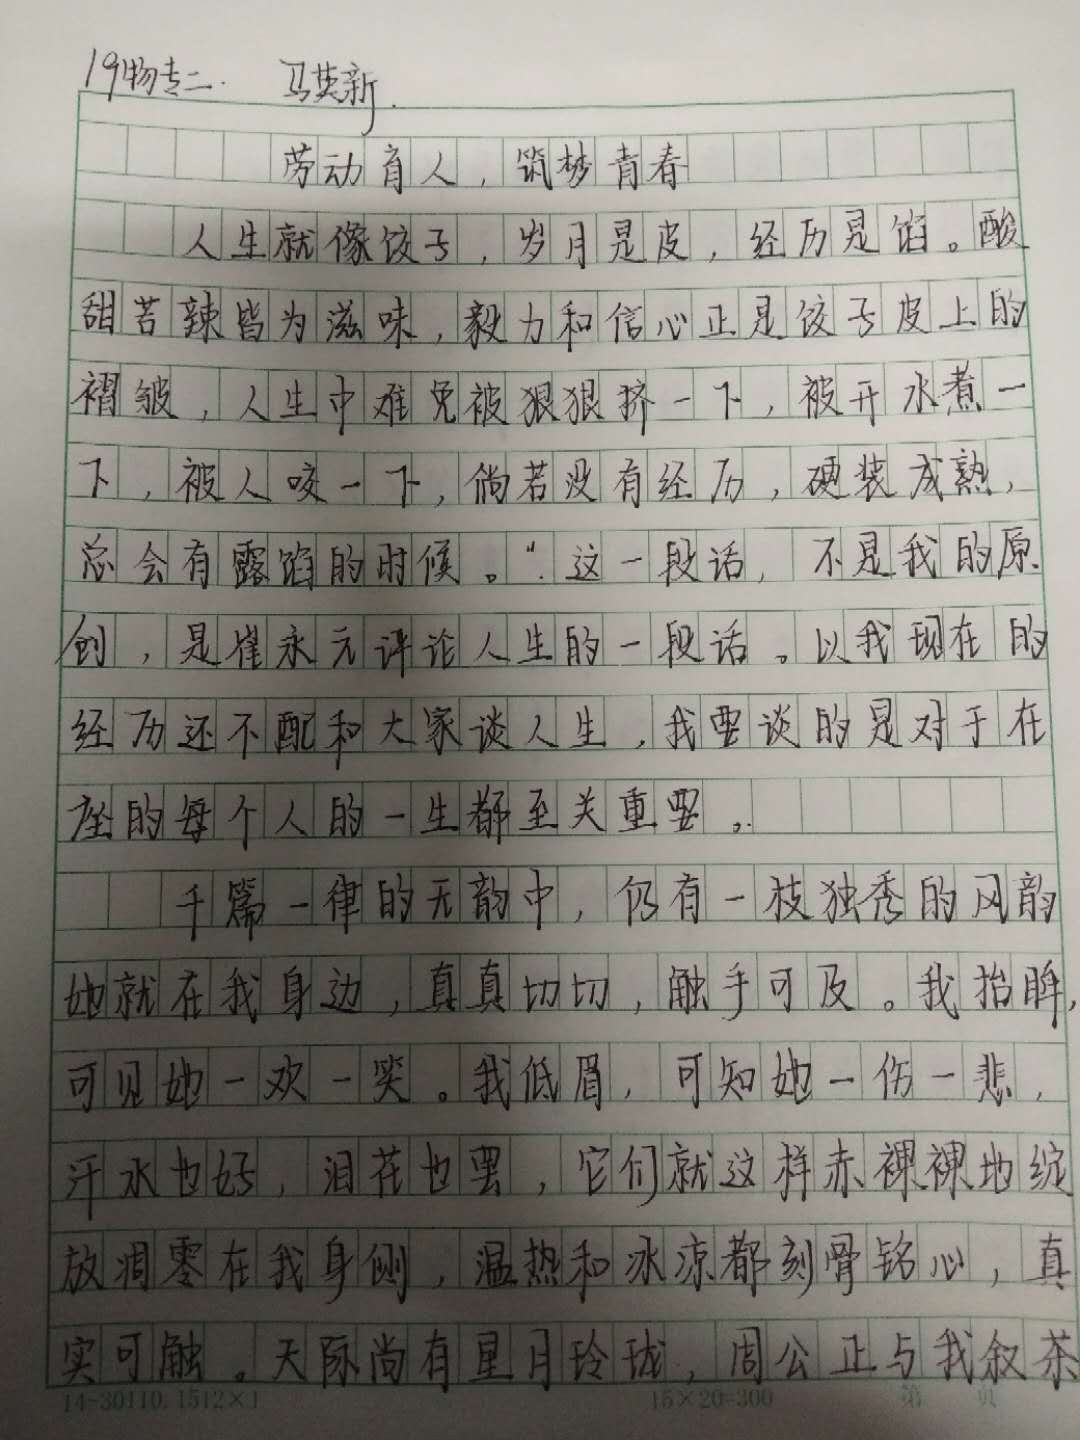 19物专二. 马英新.
劳动育人，筑梦青春
人生就像饺子，岁月是皮，经历是馅。酸
甜苦辣皆为滋味，毅力和信心正是饺子皮上的
褶皱，人生中难免被狠狠挤一下，被开水煮一
下，被人咬一下，倘若没有经历，硬装成熟，
总会有露馅的时候。"这一段话，不是我的原
创，是崔永元评论人生的一段话。以我现在的
经历还不配和大家谈人生，我要谈的是对于在
座的每个人的一生都至关重要。
千篇一律的无韵中，仍有一枝独秀的风韵
她就在我身边，真真切切，触手可及。我抬眸，
可见她一欢一笑。我低眉，可知她一伤一悲，
汗水也好，泪花也罢，它们就这样赤裸裸地绽
放凋零在我身侧，温热和冰凉都刻骨铭心，真
实可触。天际尚有星月玲珑，周公正与我叙茶
14-30110.1512×1 15×20=300 第 页